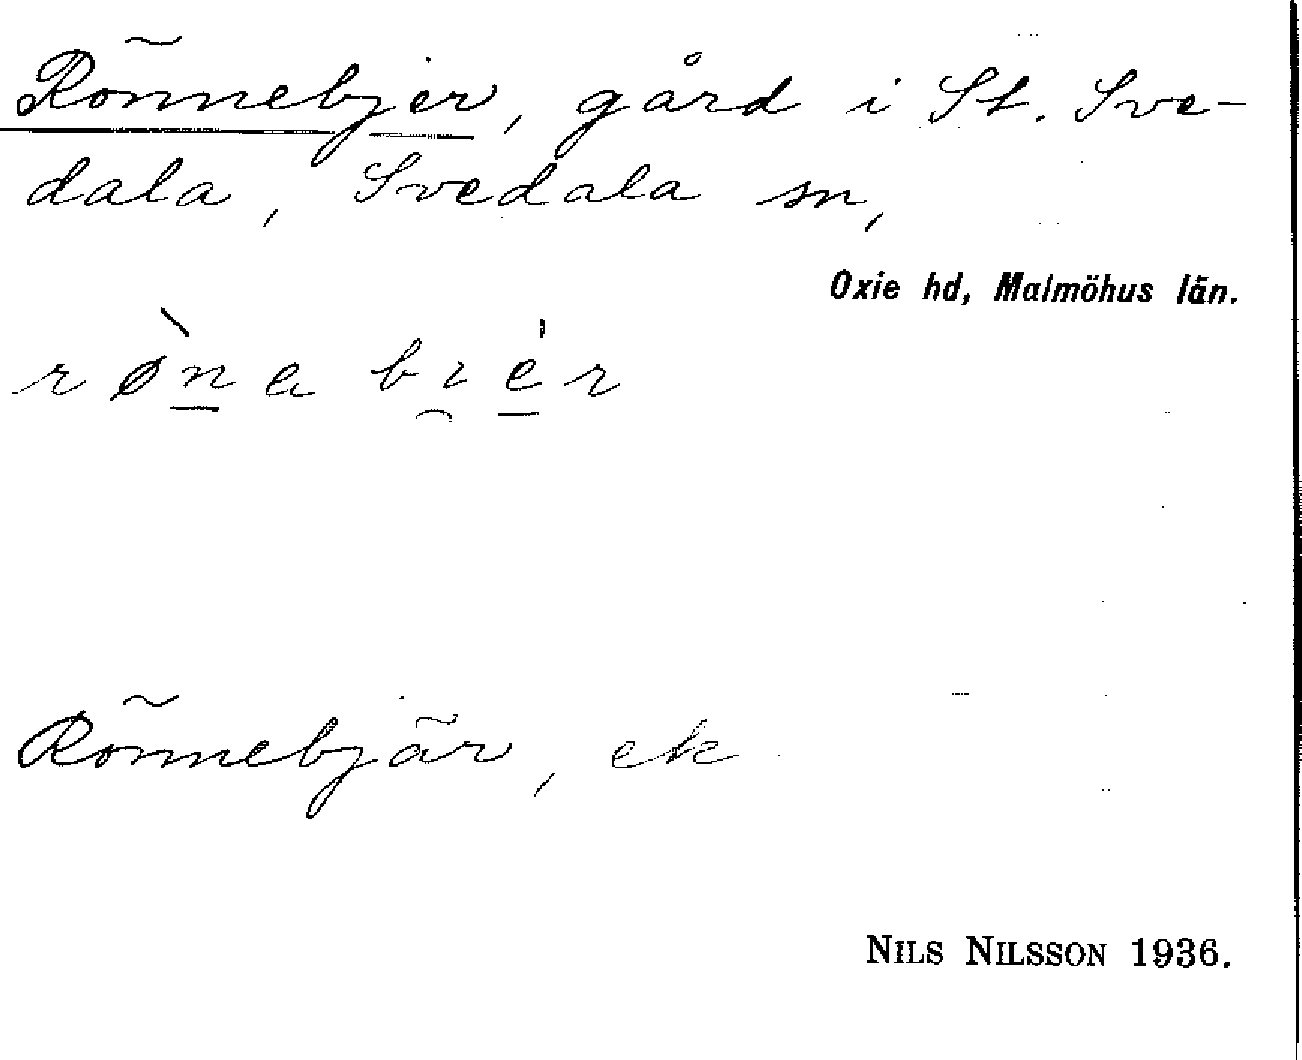 Rönnebjer, gård i St. Sve-
dala, Svedala sn,
Oxie hd, Malmöhus län.
rø̀na bıér
Rönnebjär, ek
NILS NILSSON 1936.